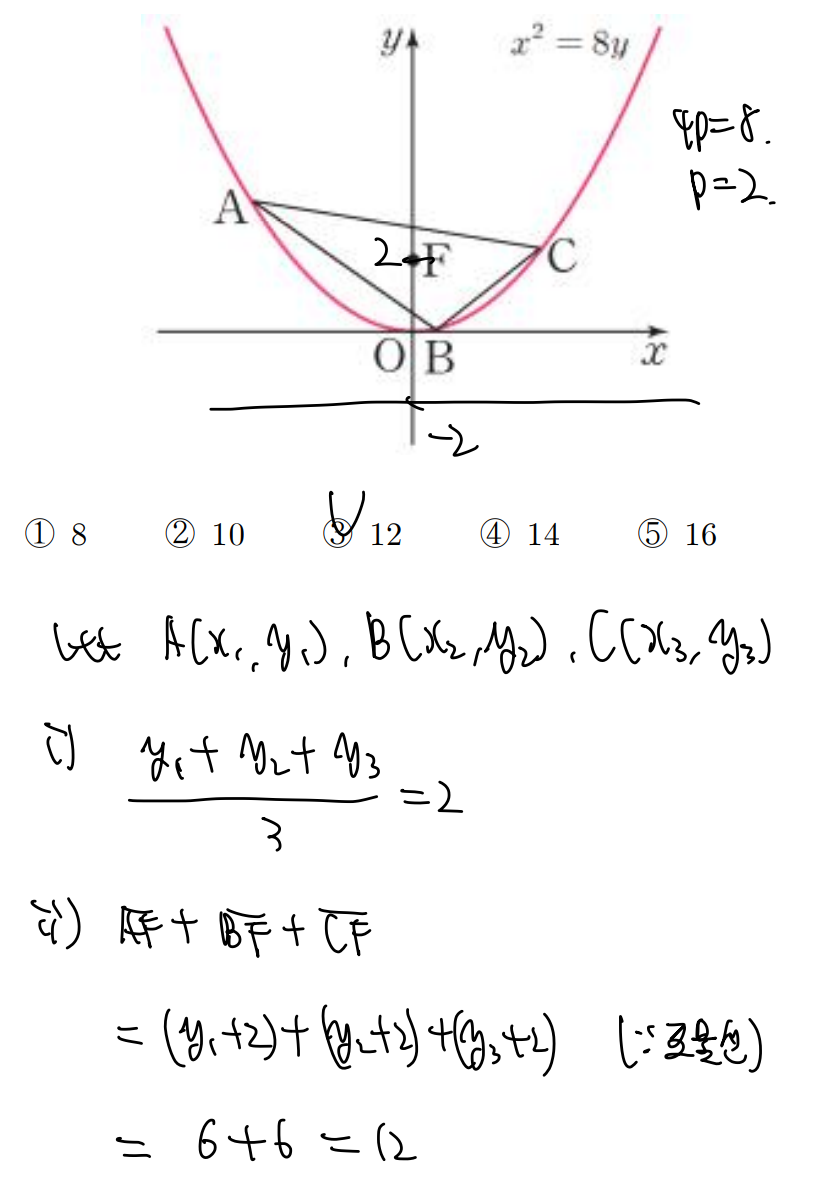 y x² = 8y
4p=8.
p=2.
A
2 F C
O B x
-2
① 8 ② 10 ③ 12 ④ 14 ⑤ 16
let A(x₁, y₁), B(x₂, y₂), C(x₃, y₃)
i) (y₁ + y₂ + y₃)/3 = 2
ii) A̅F̅ + B̅F̅ + C̅F̅
= (y₁+2)+(y₂+2)+(y₃+2) (∵포물선)
= 6+6 = 12